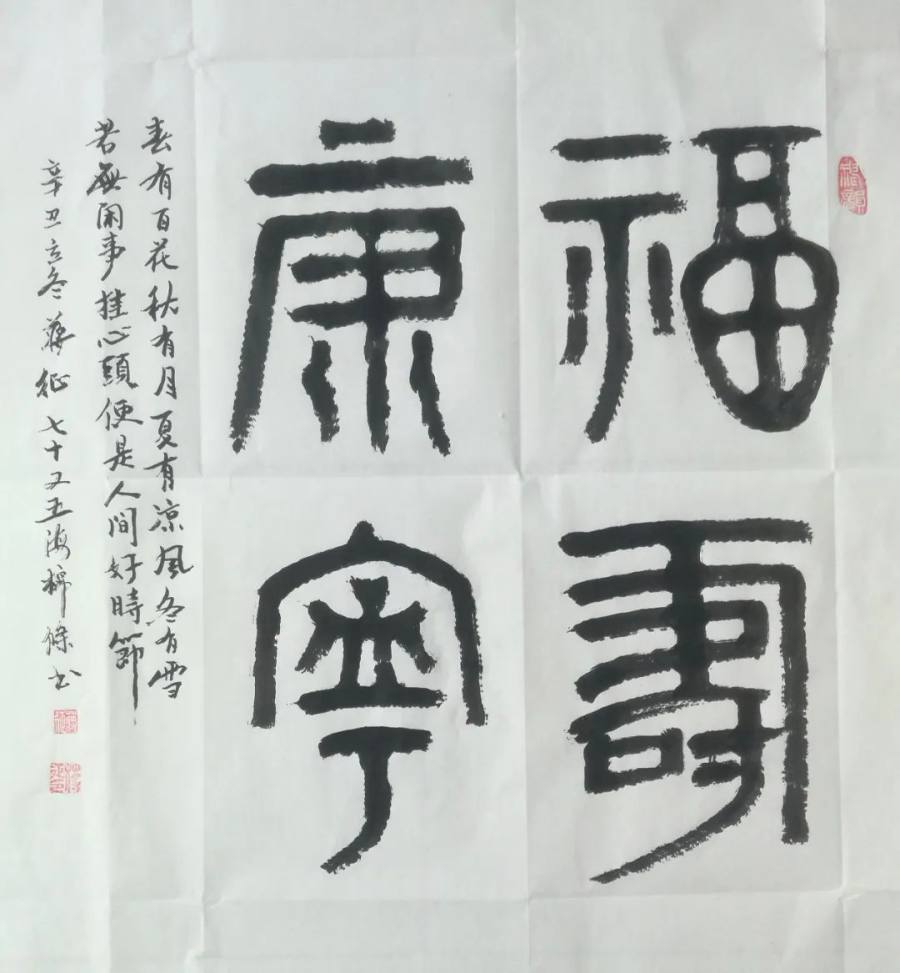 福壽
康寧
春有百花秋有月夏有涼風冬有雪
若無閑事挂心頭便是人間好時節
辛丑立冬蔣征七十又五海棉條书